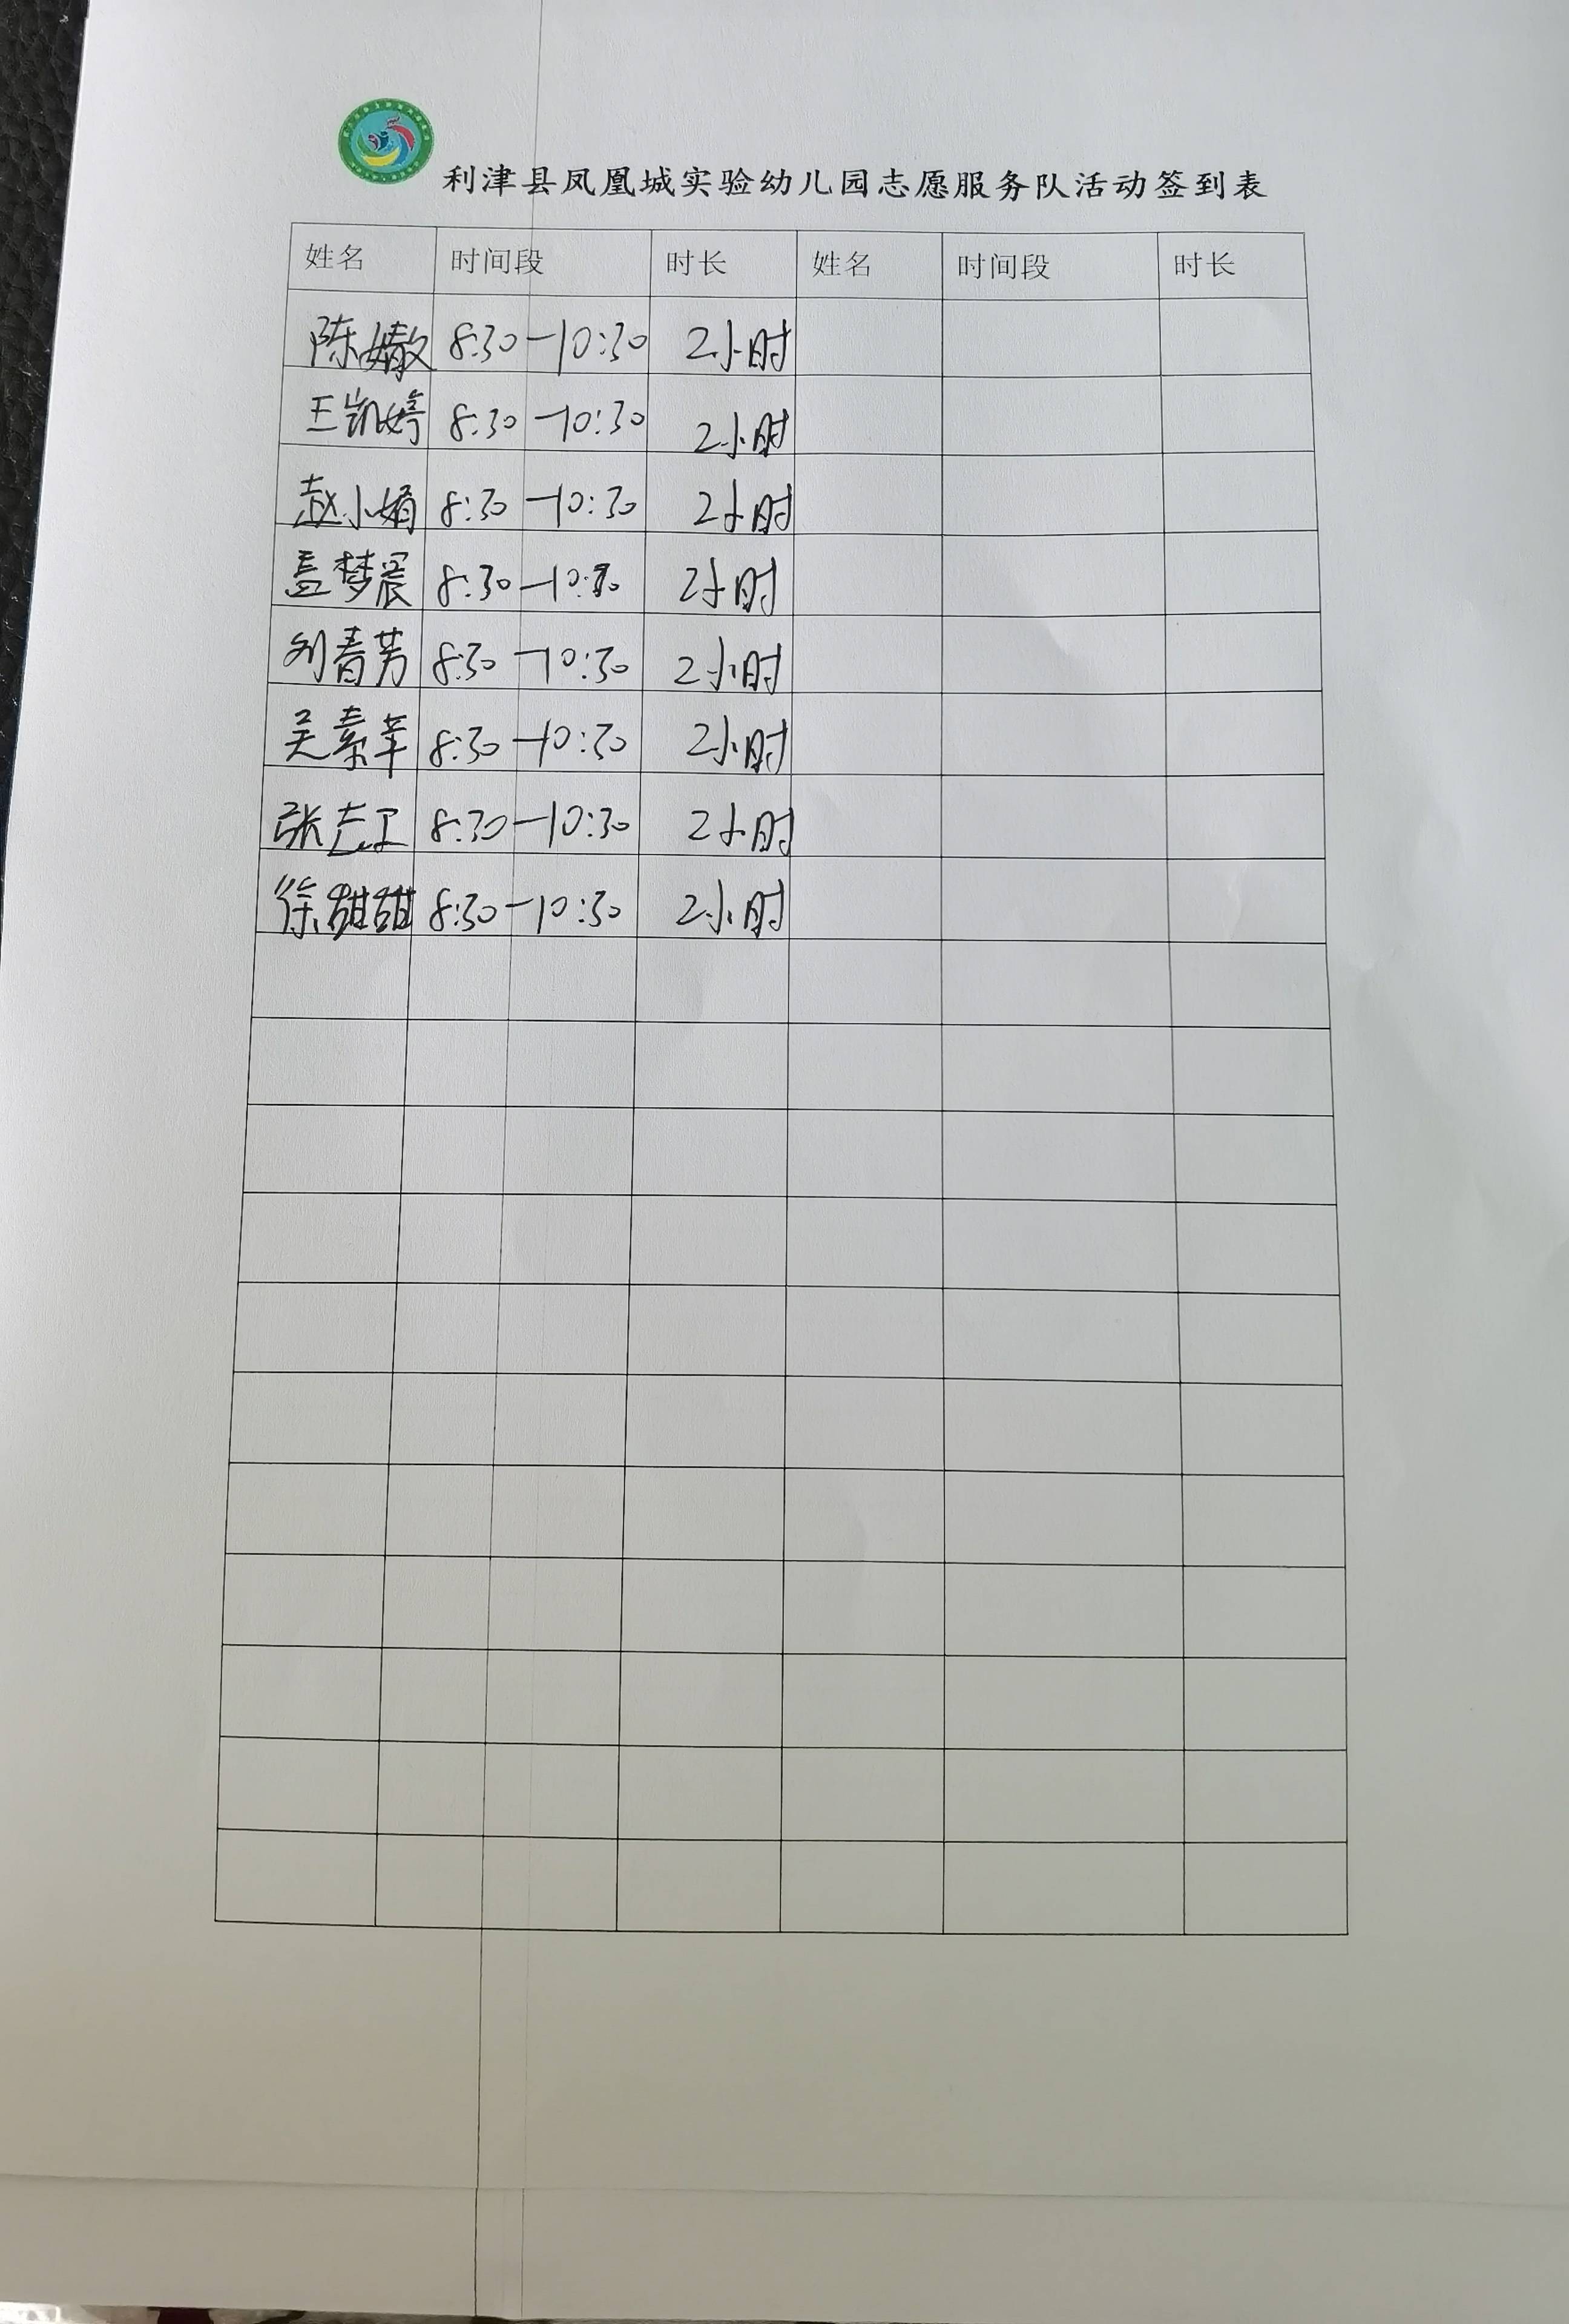 利津县凤凰城实验幼儿园志愿服务队活动签到表
姓名 时间段 时长 姓名 时间段 时长
陈嫩 8:30-10:30 2小时
王凯婷 8:30-10:30 2小时
赵小娟 8:30-10:30 2小时
盖梦晨 8:30-10:30 2小时
刘春芳 8:30-10:30 2小时
吴素苹 8:30-10:30 2小时
张志卫 8:30-10:30 2小时
徐甜甜 8:30-10:30 2小时